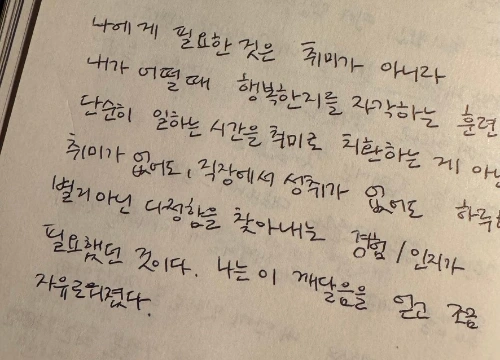 나에게 필요한 것은 취미가 아니라
내가 어떨 때 행복한지를 자각하는 훈련
단순히 일하는 시간을 취미로 치환하는 게 아
취미가 없어도, 직장에서 성취가 없어도 하루
별거아닌 다정함을 찾아내는 경험/인지가
필요했던 것이다. 나는 이 깨달음을 얻고 조금
자유로워졌다.